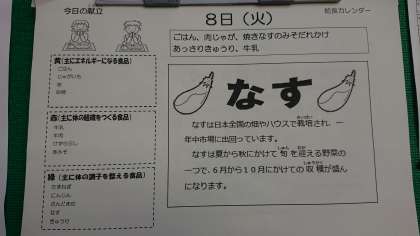 今日の献立
給食カレンダー
8日（火）
ごはん、肉じゃが、焼きなすのみそだれかけ
あっさりきゅうり、牛乳
黄（主にエネルギーになる食品）
ごはん
じゃがいも
油
砂糖
赤（主に体の組織をつくる食品）
牛乳
牛肉
けずりぶし
赤みそ
緑（主に体の調子を整える食品）
たまねぎ
にんじん
さんどまめ
なす
きゅうり
なす
なすは日本全国の畑やハウスで栽培され、一
年中市場に出回っています。
なすは夏から秋にかけて旬を迎える野菜の
一つで、6月から10月にかけての収穫が盛ん
になります。